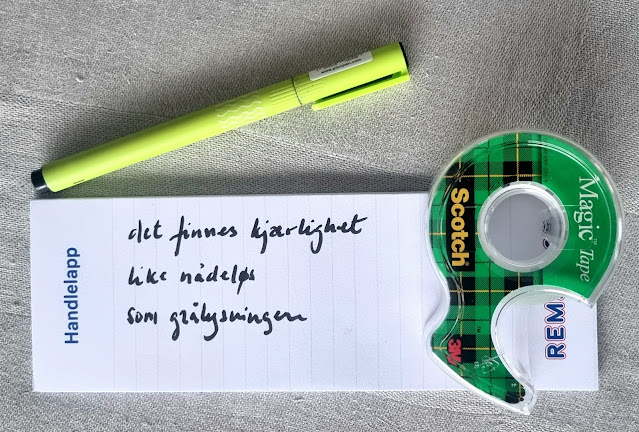 Handlelapp
det finnes kjærlighet
like nådeløs
som grålysningen
Scotch
Magic™ Tape
3M
REM